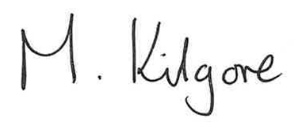 M. Kilgore